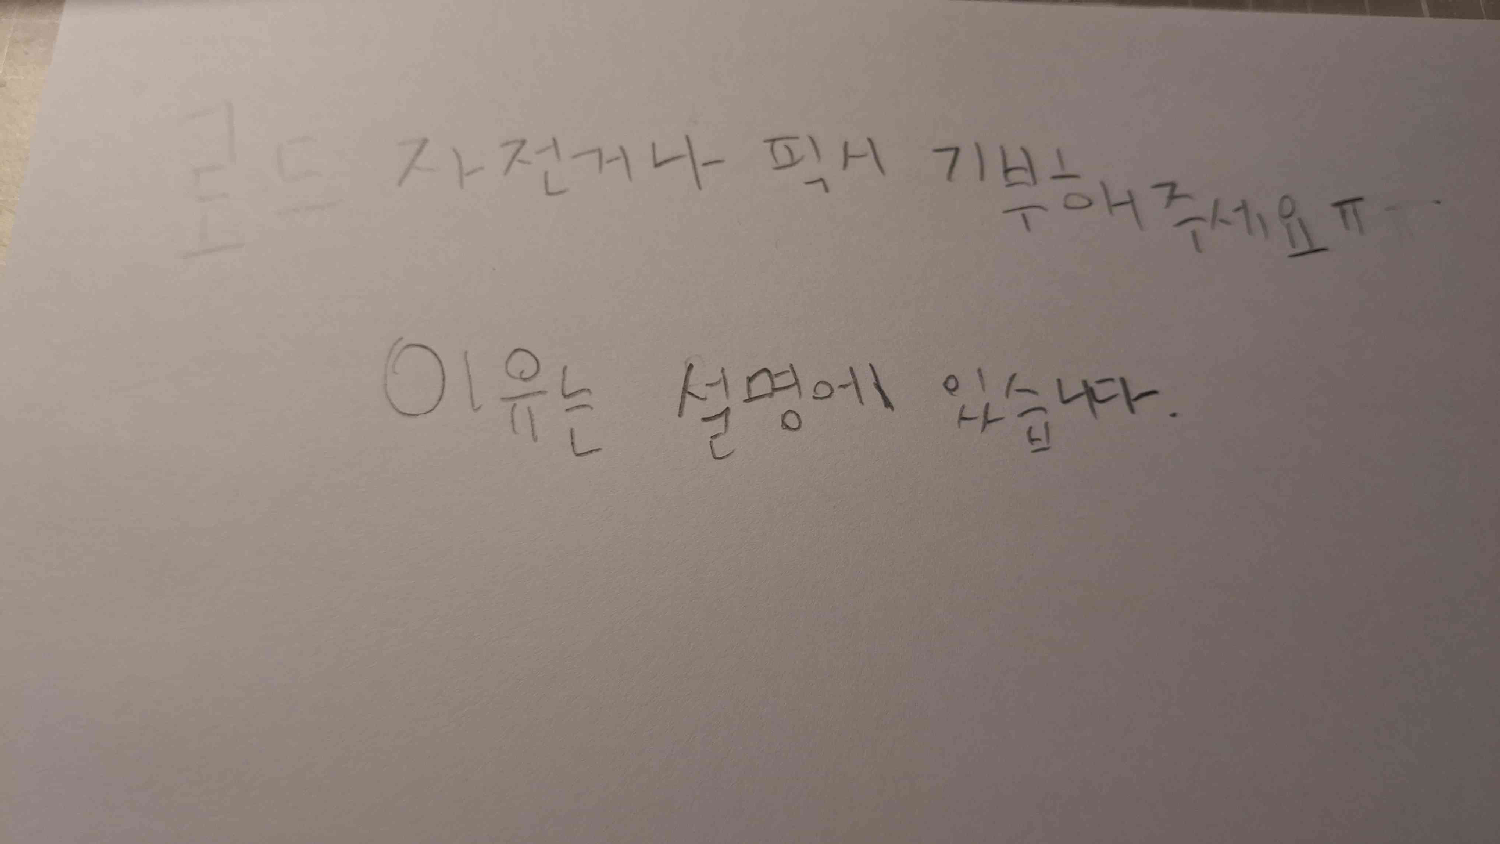 로드 자전거나 픽시 기부해주세요ㅠ...
이유는 설명에 있습니다.